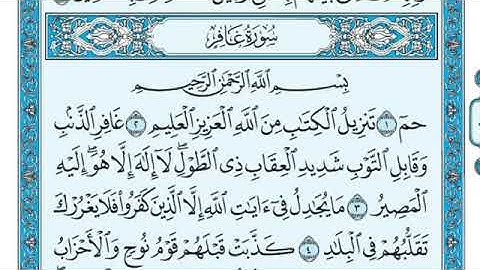 سُورَةُ غَافِرٍ
بِسْمِ ٱللَّهِ ٱلرَّحْمَٰنِ ٱلرَّحِيمِ
حمٓ ١ تَنزِيلُ ٱلْكِتَٰبِ مِنَ ٱللَّهِ ٱلْعَزِيزِ ٱلْعَلِيمِ ٢ غَافِرِ ٱلذَّنۢبِ
وَقَابِلِ ٱلتَّوْبِ شَدِيدِ ٱلْعِقَابِ ذِى ٱلطَّوْلِ ۖ لَآ إِلَٰهَ إِلَّا هُوَ ۖ إِلَيْهِ
ٱلْمَصِيرُ ٣ مَا يُجَٰدِلُ فِىٓ ءَايَٰتِ ٱللَّهِ إِلَّا ٱلَّذِينَ كَفَرُوا۟ فَلَا يَغْرُرْكَ
تَقَلُّبُهُمْ فِى ٱلْبِلَٰدِ ٤ كَذَّبَتْ قَبْلَهُمْ قَوْمُ نُوحٍ وَٱلْأَحْزَابُ